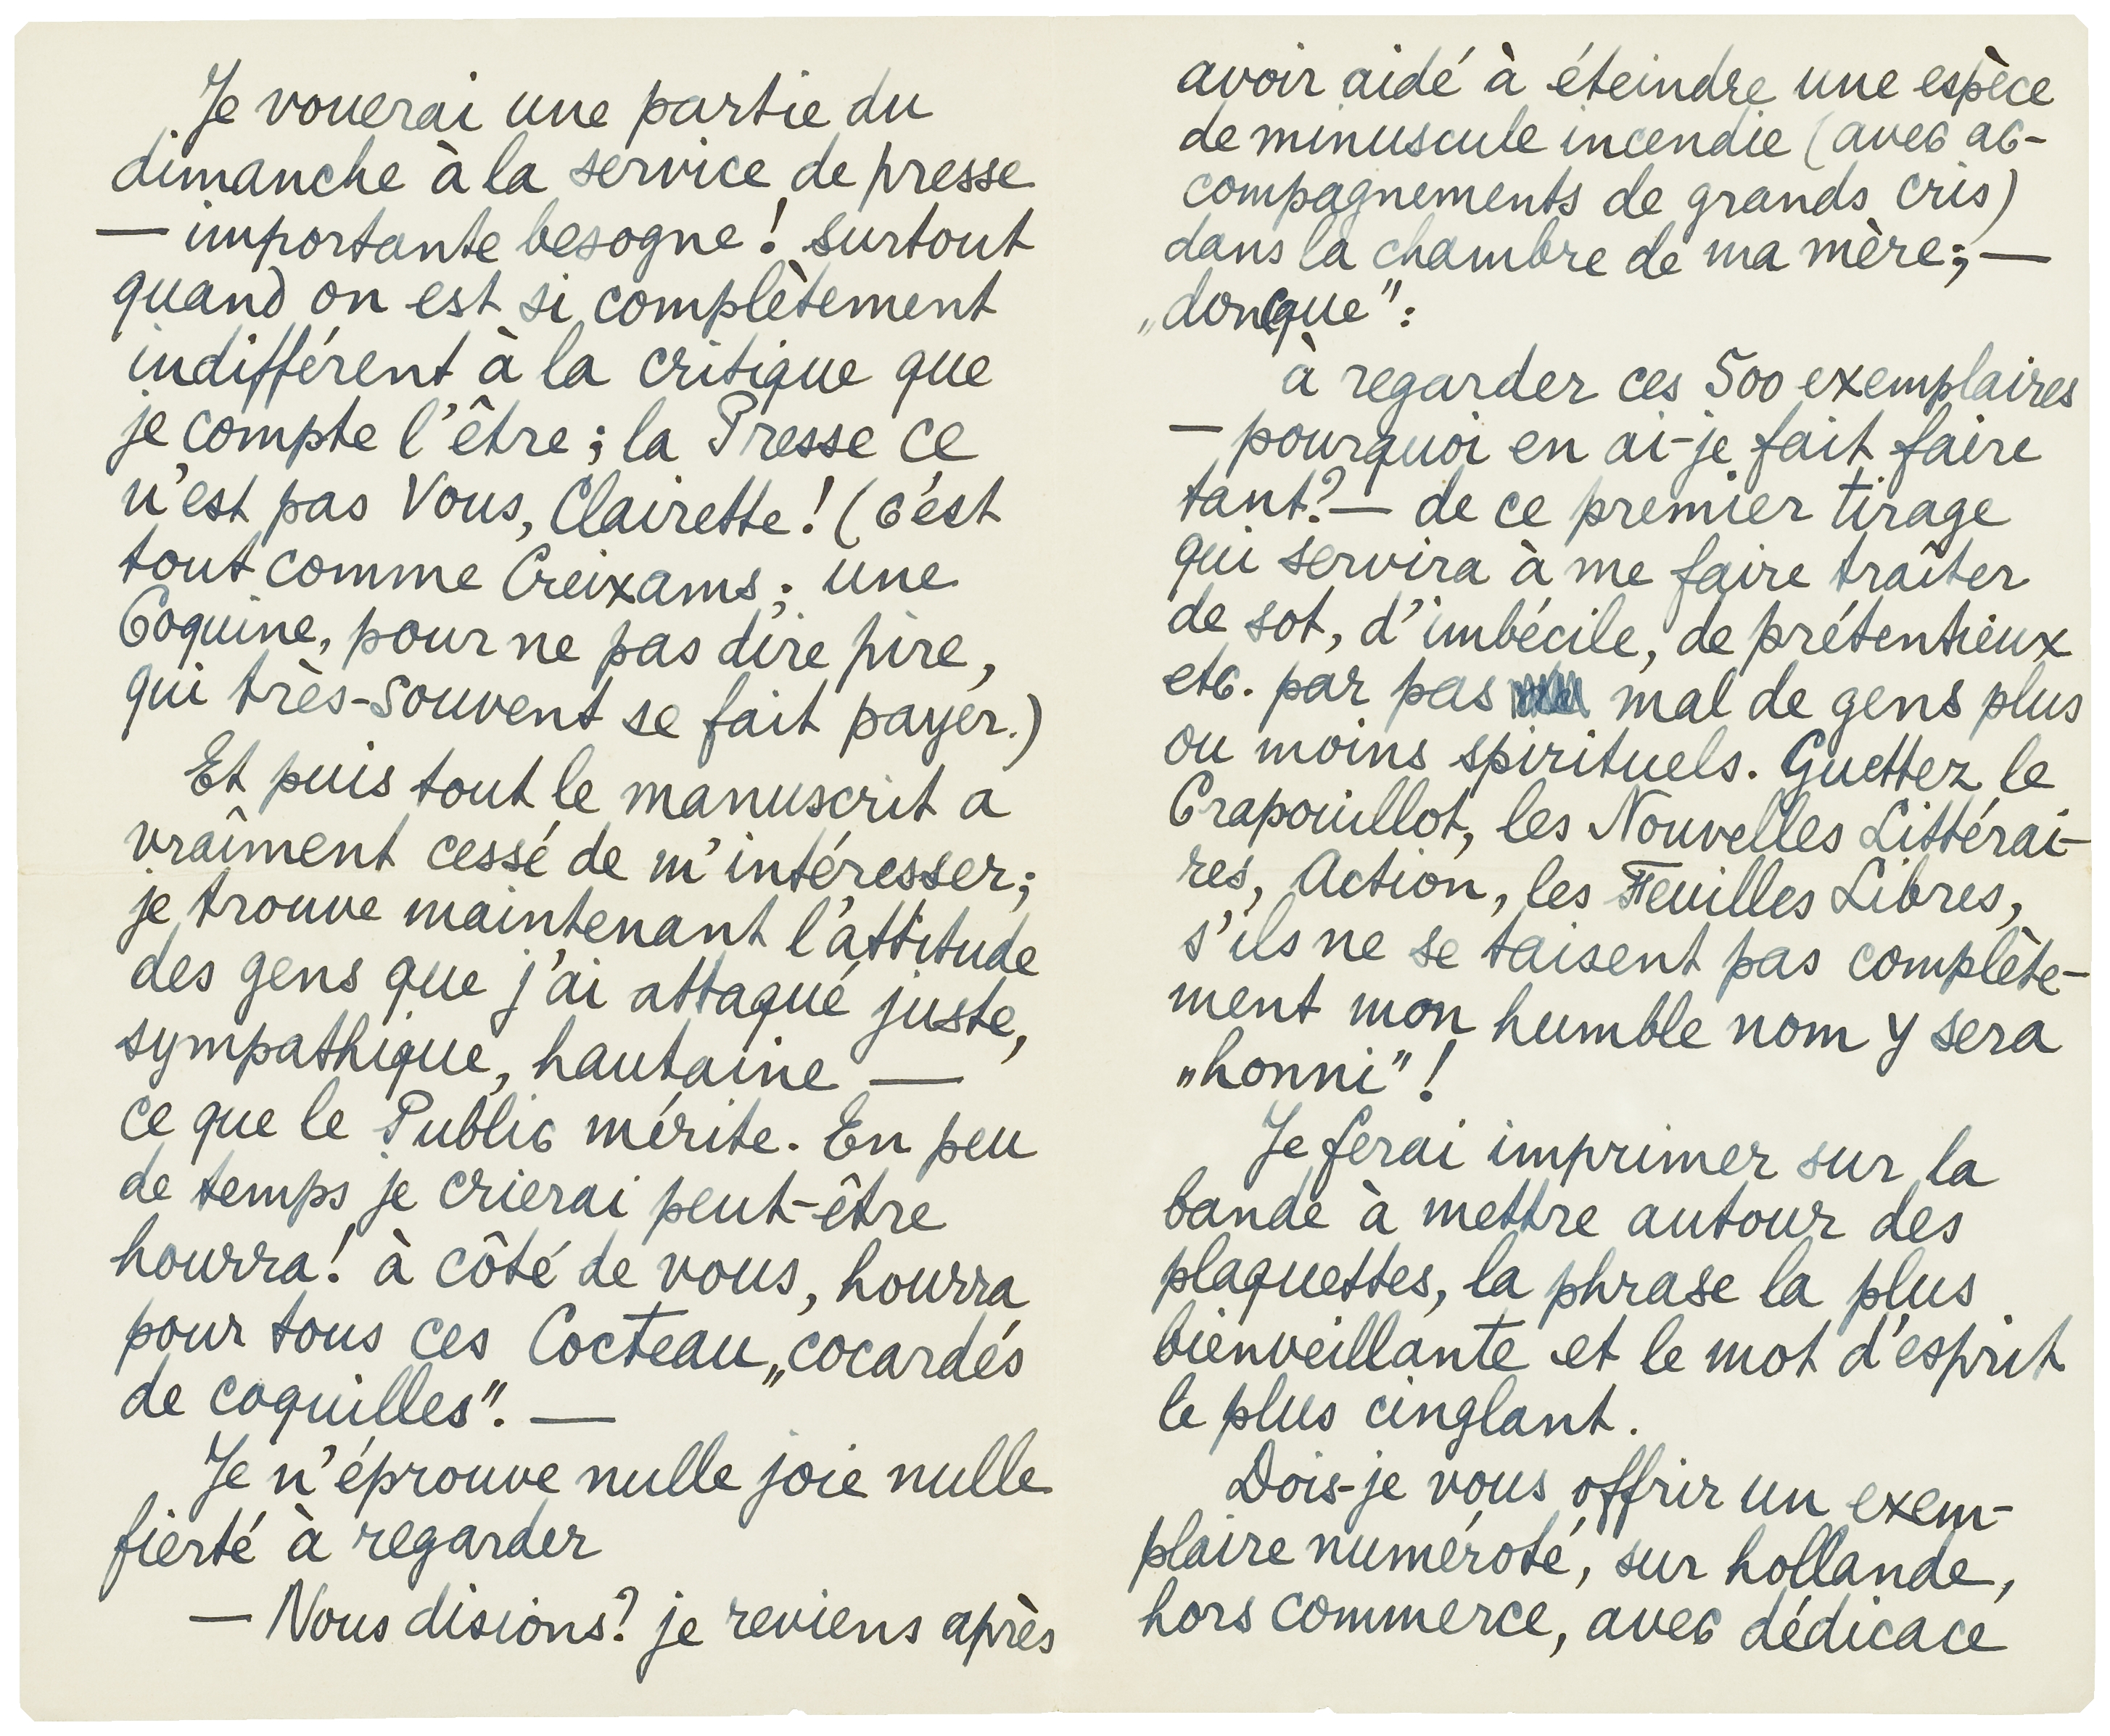 Je vouerai une partie du
dimanche à la service de presse
— importante besogne! surtout
quand on est si complètement
indifférent à la critique que
je compte l'être; la Presse ce
n'est pas Vous, Clairette! (c'est
tout comme Creixams; une
Coquine, pour ne pas dire pire,
qui très-souvent se fait payer.)
Et puis tout le manuscrit a
vraîment cessé de m'intéresser;
je trouve maintenant l'attitude
des gens que j'ai attaqué juste,
sympathique, hautaine —
ce que le Public mérite. En peu
de temps je crierai peut-être
hourra! à côté de vous, hourra
pour tous ces Cocteau „cocardés
de coquilles". —
Je n'éprouve nulle joie nulle
fierté à regarder
— Nous disions? je reviens après
avoir aidé à éteindre une espèce
de minuscule incendie (avec ac-
compagnements de grands cris)
dans la chambre de ma mère; —
„doncque":
à regarder ces 500 exemplaires
— pourquoi en ai-je fait faire
tant? — de ce premier tirage
qui servira à me faire traîter
de sot, d'imbécile, de prétentieux
etc. par pas mal de gens plus
ou moins spirituels. Guettez le
Crapouillot, les Nouvelles Littérai-
res, Action, les Feuilles Libres,
s'ils ne se taisent pas complète-
ment mon humble nom y sera
„honni"!
Je ferai imprimer sur la
bande à mettre autour des
plaquettes, la phrase la plus
bienveillante et le mot d'esprit
le plus cinglant.
Dois-je vous offrir un exem-
plaire numéroté, sur hollande,
hors commerce, avec dédicace